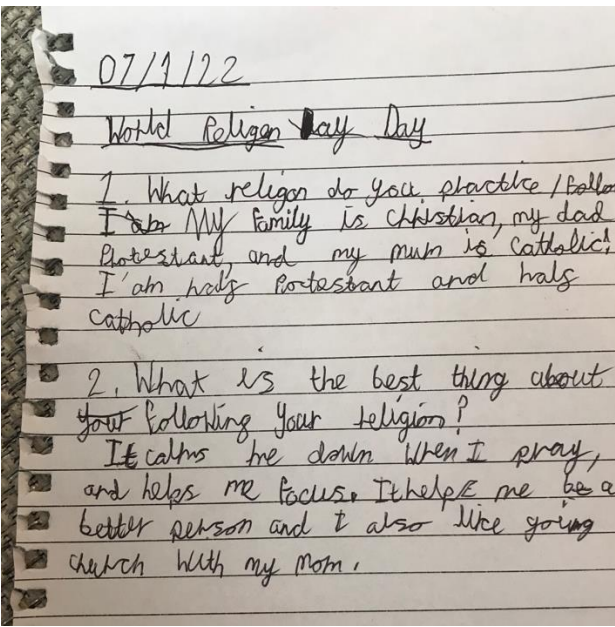 07/1/22
World Religen Day Day
1. What religon do you practice / follo
I am My family is christian, my dad
Protestant, and my mum is catholic.
I'am half Protestant and half
catholic
2. What is the best thing about
your following your religion?
It calms me down when I pray,
and helps me focus. It helps me be a
better person and I also like going
church with my mom.